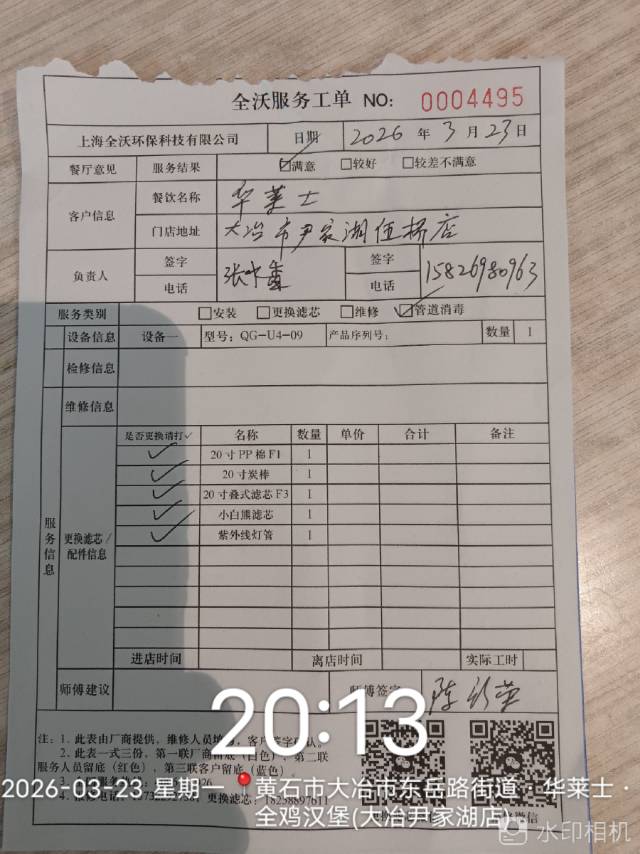 全沃服务工单 NO: 0004495
上海全沃环保科技有限公司 日期 2026 年 3 月 23 日
餐厅意见 服务结果 ☑满意 □较好 □较差不满意
客户信息 餐饮名称 华莱士
门店地址 大冶市尹家湖伍桥店
负责人 签字 签字
电话 电话 15826980963
服务类别 □安装 □更换滤芯 □维修 ☑管道消毒
设备信息 设备一 型号: QG-U4-09 产品序列号: 数量 1
检修信息
维修信息
服务信息
更换滤芯/配件信息
是否更换请打✓ 名称 数量 单价 合计 备注
✓ 20寸PP棉F1 1
✓ 20寸炭棒 1
✓ 20寸叠式滤芯F3 1
✓ 小白熊滤芯 1
✓ 紫外线灯管 1
进店时间 离店时间 实际工时
师傅建议 师傅签字
20:13
注: 1. 此表由厂商提供, 维修人员填写, 客户签字确认。
2. 此表一式三份, 第一联厂商留底(白色), 第二联
服务人员留底(红色), 第三联客户留底(蓝色)
2026-03-23 星期一 黄石市大冶市东岳路街道·华莱士·
全鸡汉堡(大冶尹家湖店)
更换滤芯: 18258897611
水印相机